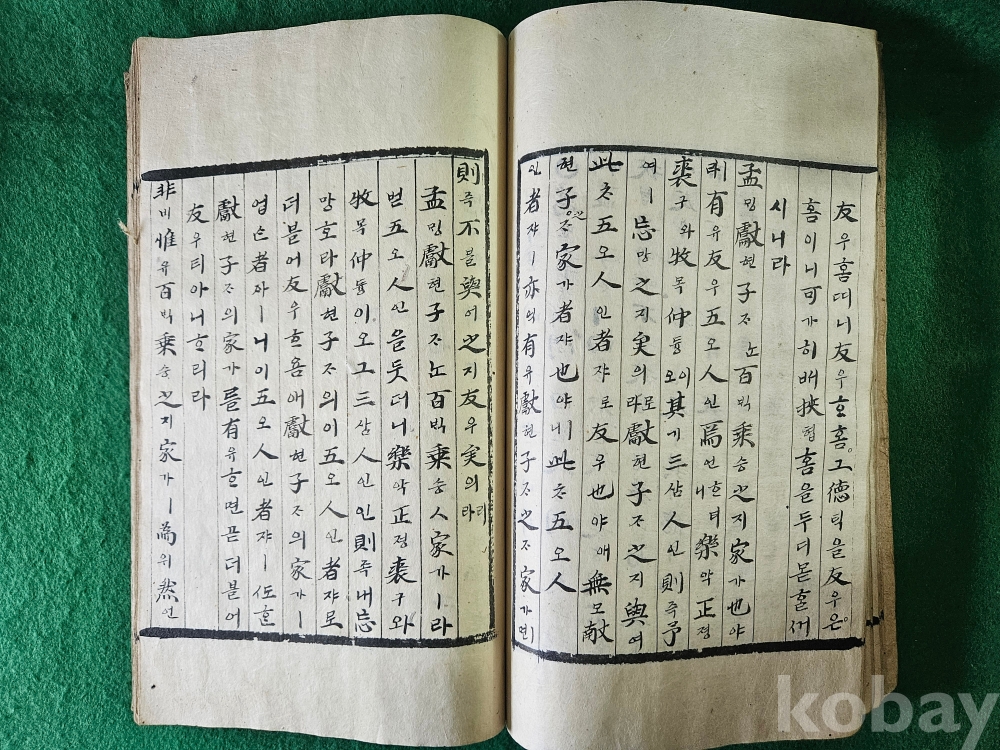 友우홈띠니友우호홈그德덕을友우은
홈이니可가히써挾협홈을두디몯홀써
시니라
孟밍獻헌子ᄌᆞ는百ᄇᆡᆨ乘승之지家가也야
有유友우五오人인焉언ᄒᆞ더니樂악正졍
裘구와牧목仲듕이오其기三삼人인則즉予
여ㅣ忘망之지矣의로라獻헌子ᄌᆞ之지與여
此ᄎᆞ五오人인者쟈로友우也야애無무獻
헌子ᄌᆞ之지家가者쟈也야ㅣ니此ᄎᆞ五오人
인者쟈ㅣ亦역有유獻헌子ᄌᆞ之지家가ㅣ면
則즉不블與여之지友우矣의리라
孟밍獻헌子ᄌᆞ는百ᄇᆡᆨ乘승人家가ㅣ라
벋五오人인을듯더니樂악正졍裘구와
牧목仲듕이오그三삼人인인則즉내忘
망호라獻헌子ᄌᆞ의이五오人인者쟈로
더블어友우ᄒᆞ욤애獻헌子ᄌᆞ의家가ㅣ
업슨者쟈ㅣ니이五오人인者쟈ㅣ또ᄒᆞᆫ
獻헌子ᄌᆞ의家가를有유ᄒᆞ면곧더블어
友우티아니ᄒᆞ리라
非비惟유百ᄇᆡᆨ乘승之지家가ㅣ爲위然연
kobay